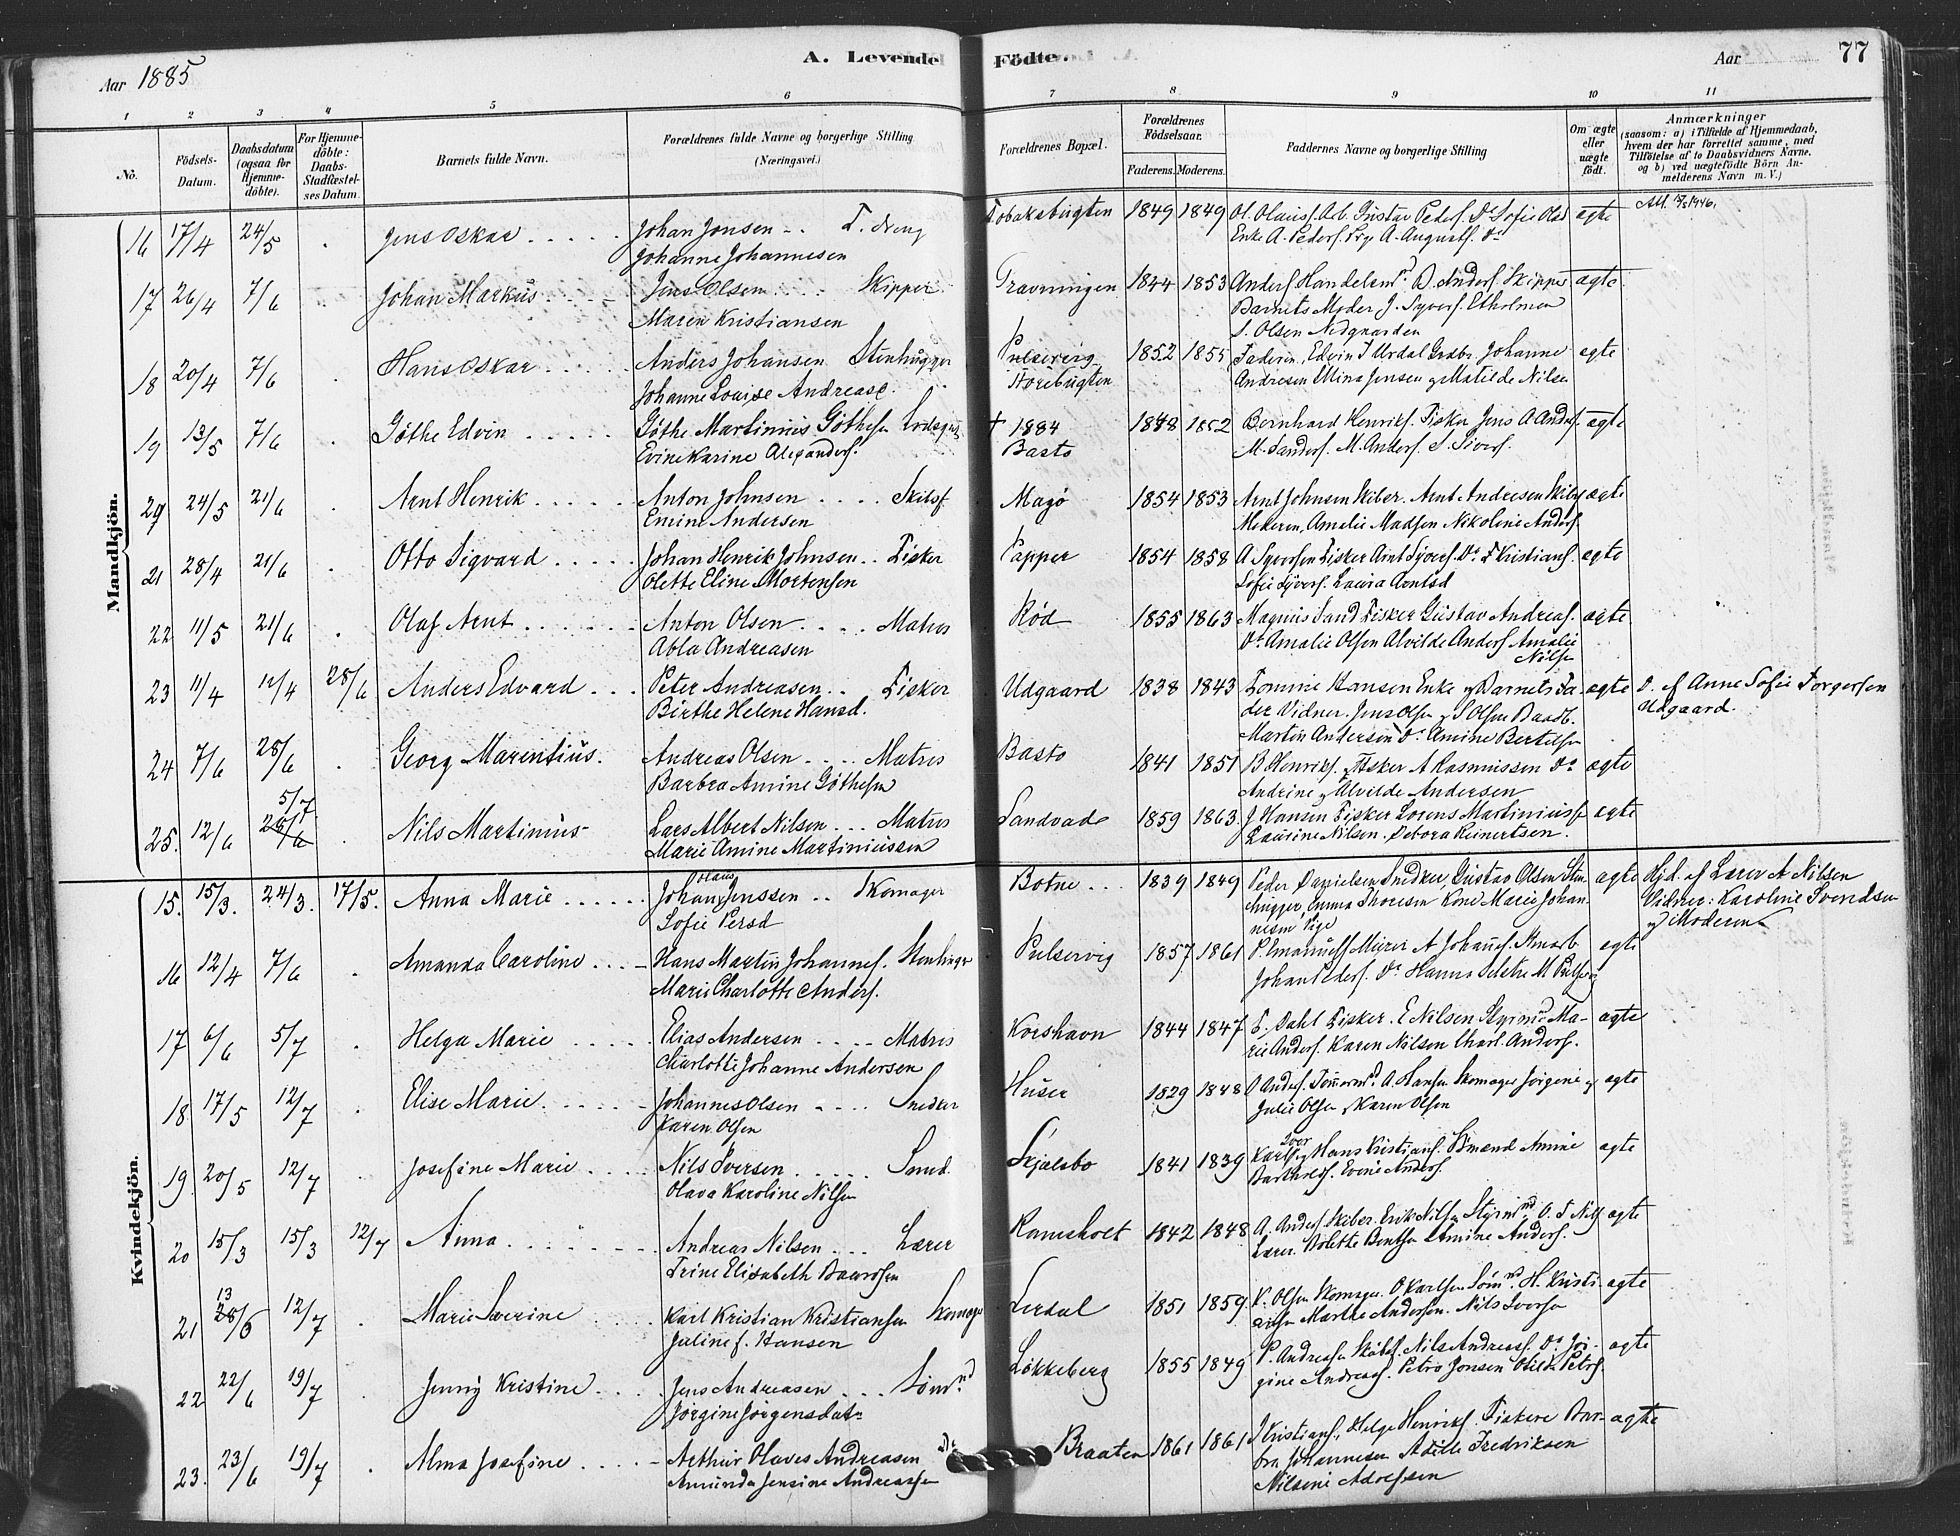 Aar 1885
A. Levende Födte.
Aar
77
1 2 3 4 5 6 7 8 9 10 11
No.
Födsels-Datum.
Daabsdatum (ogsaa for Hjemme-döbte).
For Hjemme-döbte: Daabs-Stadfæstel-ses Datum.
Barnets fulde Navn.
Forældrenes fulde Navne og borgerlige Stilling (Næringsvei.)
Forældrenes Bopæl.
Forældrenes Födselsaar.
Faderens. Moderens.
Faddernes Navne og borgerlige Stilling
Om ægte eller uægte födt.
Anmærkninger
(saasom: a) i Tilfælde af Hjemmedaab, hvem der har forrettet samme, med Tilföielse af to Daabsvidners Navne. og b) ved uægtefödte Börn An-melderens Navn m. V.)
Mandkjön.
16 17/4 24/5 Jens Oskar Johan Jonsen Tobaksbugten 1849 1849 Ol. Olausf. Arb. Gustav Pedersf. Do Sofie Olsd ægte
Johanne Johannesen Enke A. Pedersf. Pige A. Augustf. Do
17 26/4 7/6 Johan Markus Jens Olsen Skipper 1844 1853 ægte
Maren Kristiansen Barnets Moder J. Syversf. Etholmen
S. Olsen Nedgaarden
18 20/4 7/6 Hans Oskar Anders Johansen Stenhugger Pulservig 1852 1855 Faderen, Edvin Johanne ægte
Johanne Louise Andrease. Storebugten Andresen Mina Jensen og Matilde Nilsen
19 13/5 7/6 Göthe Edvin Göthe Martinius Göthesen † 1884 1848 1852 Bernhard Henriksf. Fisker Jens A. Andersf. ægte
Evine Karine Alexandersf. Basto M. Andersf. S. Siversf.
20 24/5 21/6 Arnt Henrik Anton Johnsen Magö 1854 1853 Arnt Johnsen Skiber. Arnt Andresen ægte
Emine Andersen Moderen, Amalie Madsen Nikoline Andersf.
21 28/4 21/6 Otto Sigvard Johan Henrik Johnsen Fisker Papper 1854 1858 A Syversen Fisker Arnt Syversf. Do Kristiansf. ægte
Olette Eline Mortensen Sofie Syversf. Laura Arntsd
22 11/5 21/6 Olaf Arnt Anton Olsen Matros Röd 1855 1863 Magnus Sand Fisker Gustav Andreasf. ægte
Abla Andreasen Do Amalie Olsen Alvilde Andersf Amalie
Nilsen
23 11/4 11/4 28/6 Anders Edvard Peter Andreasen Fisker Udgaard 1838 1843 Hansen Enke og Barnets Fa- ægte D. af Anne Sofie Torgersen
Birthe Helene Hansd. der Vidner. Jens Olsen og Olsen Udgaard.
Martin Andersen Do Amine Bertelsen
24 7/6 28/6 Georg Marentius. Andreas Olsen Matros Basto 1841 1851 B. Henriksf. Fisker A Rasmussen Do ægte
Barbra Amine Göthesen Andrine og Alvilde Andersen
5/7
25. 12/6 28/6 Nils Martinius Lars Albert Nilsen Matros Sandvad 1859 1863. J Hansen Fisker Lorens Martiniusf. ægte
Marie Amine Martiniussen Laurine Nilsen. Debora Reinertsen.
Kvindekjön.
15. 15/3. 24/3. 17/5. Anna Marie Johan Olaus Jenssen Skomager Botne 1839 1849 Peder Danielsen Snedker Gustav Olsen Sten- ægte Hjd. af Lærer A Nilsen
Sofie Persd hugger, Emma Thoresen Kone Marie Johan- Vidner: Karoline Svendsen
nesen Pige og Moderen
16 12/4 7/6 Amanda Caroline Hans Martin Johannesf. Stenhugger Pulservig 1857 1861 P. Emanuelsf Murer A Johansf. ægte
Marie Charlotte Andersf. Johan Pedersf. Do Hanna
17 6/6 5/7 Helga Marie Elias Andersen Matros Korshavn 1844 1847 Dahl Fisker. E Nilsen Styrmd Ma- ægte
Charlotte Johanne Andersen rie Andersf. Karen Nilsen Charl. Andersf.
18 17/5 12/7 Elise Marie. Johannes Olsen Snedker Huser 1829 1848 Andersf. Tömermd. A. Hansen Skomager Jörgine og ægte
Karen Olsen Julie Olsen og Karen Olsen
19. 20/5 12/7 Josefine Marie Nils Iversen Sömd. Skjælsbo 1841 1839 Karl Iver og Hans Kristiansf. Sömænd Amine ægte
Olava Karoline Nilsen Evine Andersf
20 15/3 15/3 12/7 Anna Andreas Nilsen Lærer Ramsholt 1842 1848 A. Andersf. Skiber. Erik Nilsen Styrmnd. O. S Nilsf ægte
Trine Elisabeth Lærer. Bolette Bentsen Emine Andersf.
13
21 28/6 12/7 Marie Severine Karl Kristian Kristiansen Skomager Lerdal 1851 1859. K. Olsen Skomager. O Karlsen Sömnd. H. Kristi- ægte
Juline f. Hansen ansen Marthe Andersen. Nils Iversen
22 22/6 19/7 Jenny Kristine Jens Andreasen Sömnd Lökkeberg 1855 1849 P. Andreasen Nils Andreasf. Do Jör- ægte
Jörgine Jörgensdatr gine Andreasf. Petra Jonsen
23. 23/6 19/7 Alma Josefine Arthur Olaves Andreasen Braaten 1861 1861 Kristiansf, Helge Henriksf. Fiskere Bar- ægte
Amunda Jensine Andreassen bra Johannesen Adille Fredriksen
Nilsine Adolfsen